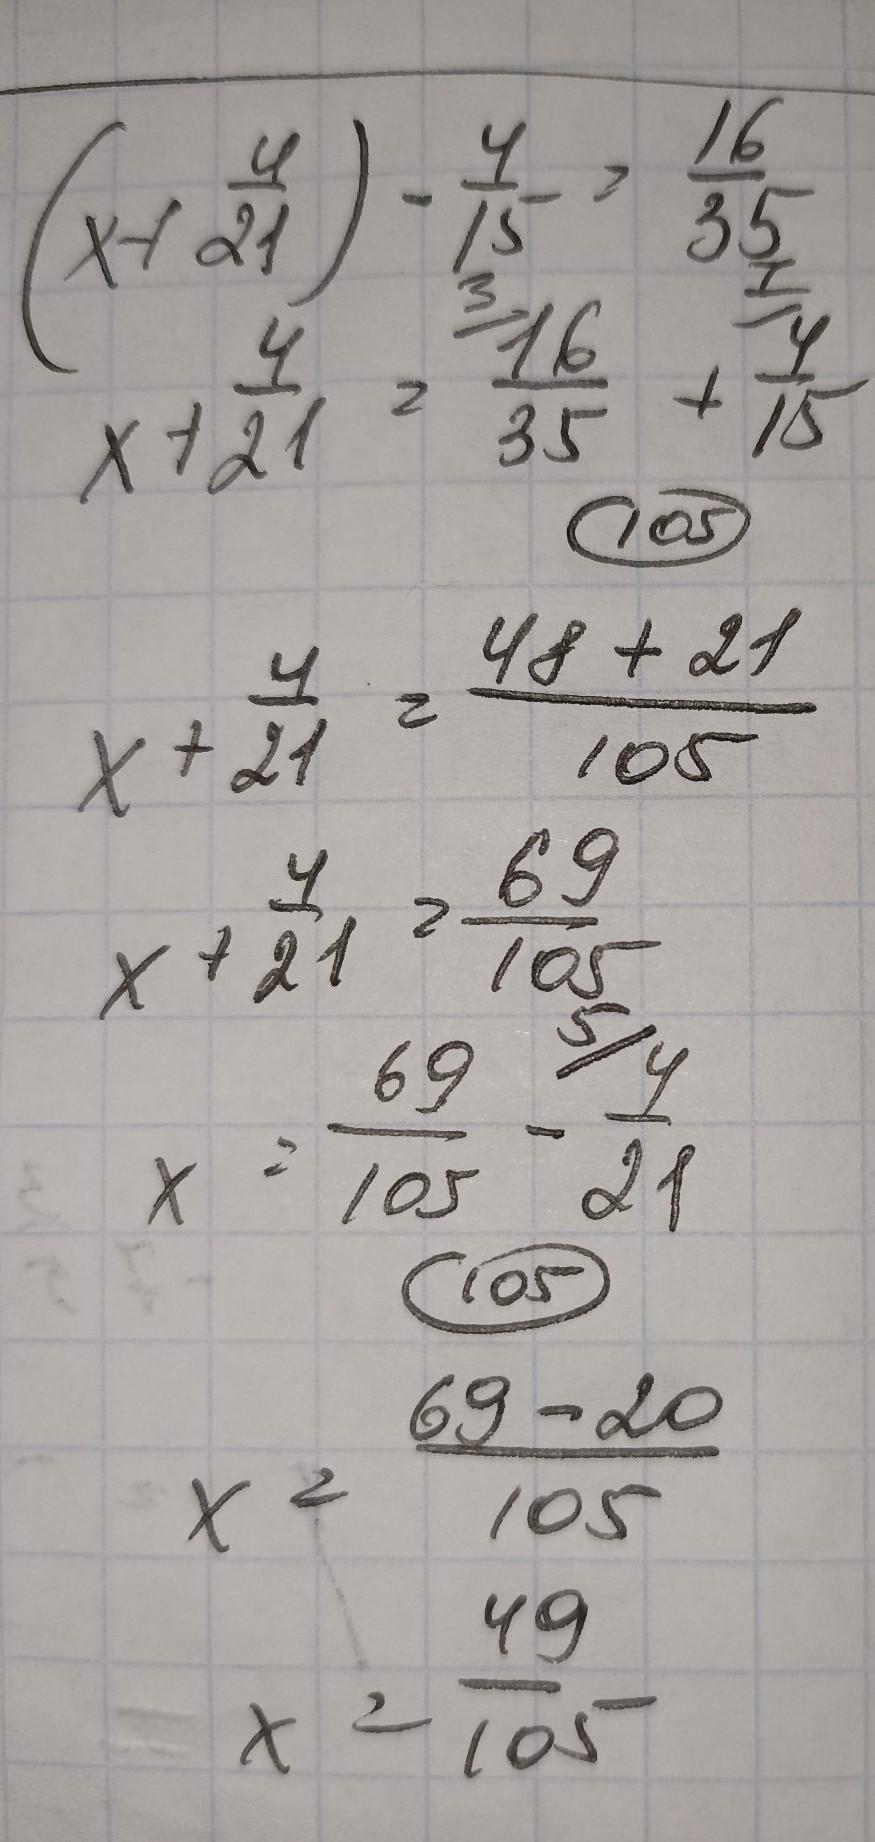 (x+4/21) - 4/15 = 16/35
x+4/21 = 3/ 16/35 + 7/ 4/15
105
x + 4/21 = 48 + 21/105
x + 4/21 = 69/105
x = 69/105 - 5/ 4/21
105
x = 69 - 20/105
x = 49/105